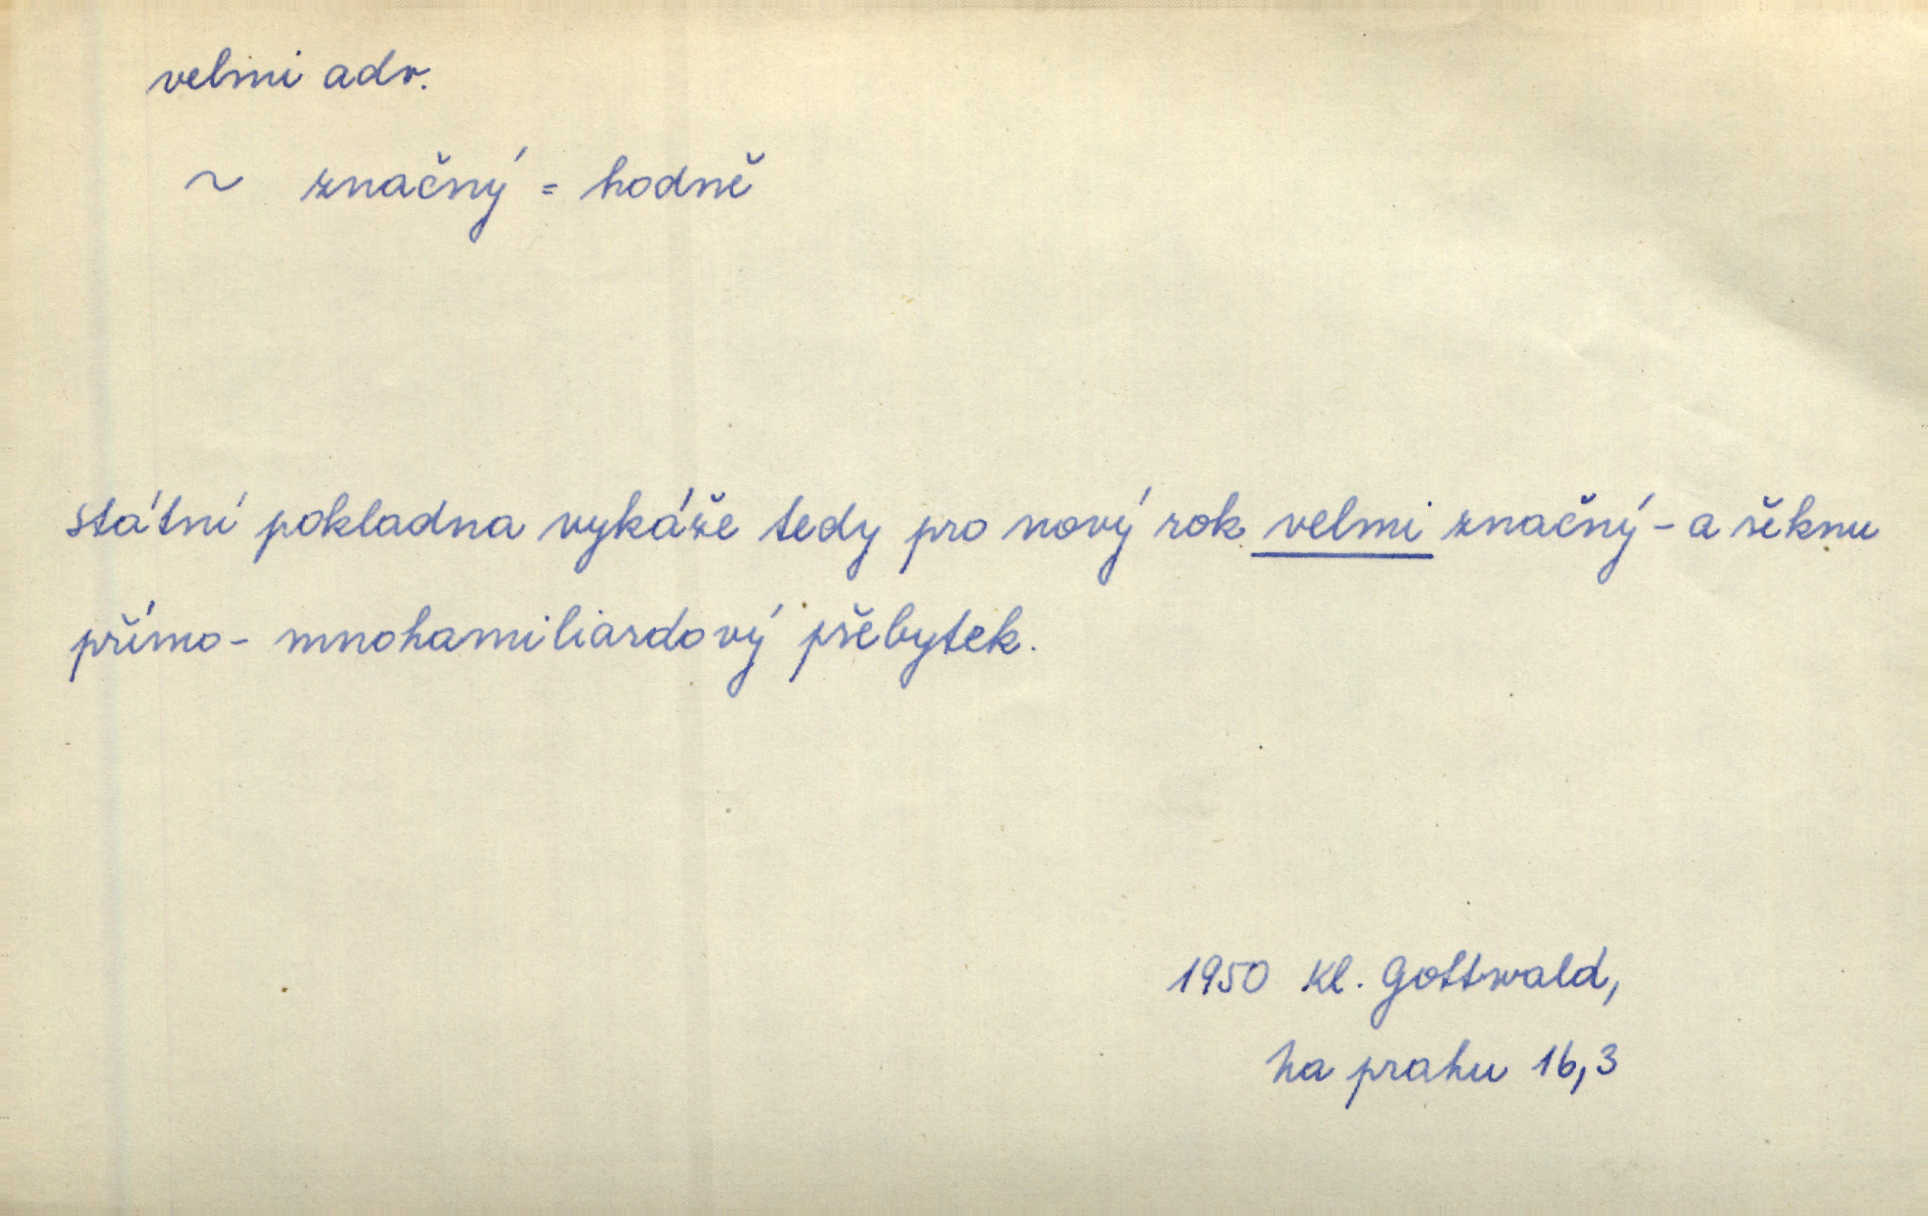 velmi adv.
~ značný = hodně
státní pokladna vykáže tedy pro nový rok velmi značný - a řeknu
přímo - mnohamiliardový přebytek.
1950 Kl. Gottwald,
Na prahu 16,3